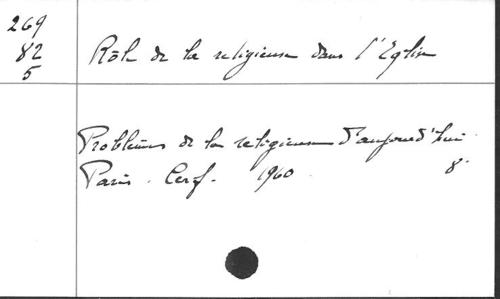 269
82
5
Rôle de la religieuse dans l'Eglise
Problèmes de la religieuse d'aujourd'hui
Paris. Cerf. 1960 8°